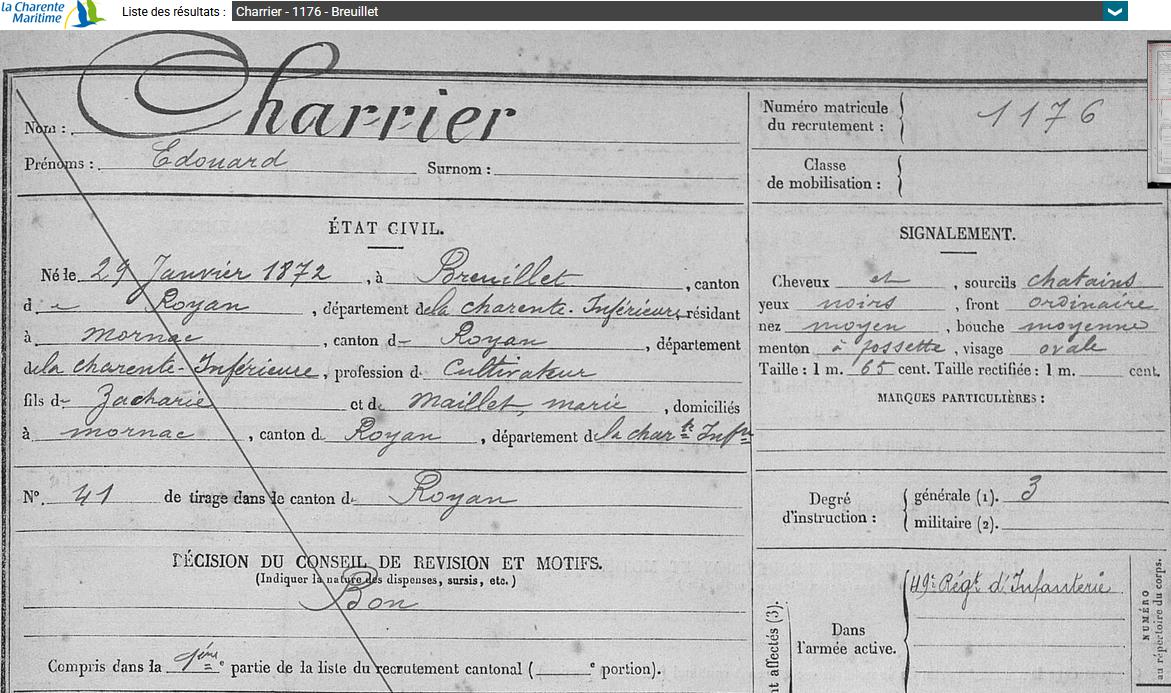 la Charente
Maritime
Liste des résultats : Charrier - 1176 - Breuillet
Nom : Charrier
Prénoms : Edouard Surnom :
Numéro matricule
du recrutement : 1176
Classe
de mobilisation :
ÉTAT CIVIL.
Né le 29 Janvier 1872, à Breuillet, canton
de Royan, département de la charente-Inférieure, résidant
à mornac, canton de Royan, département
de la charente-Inférieure, profession de Cultivateur
fils de Zacharie et de Maillet, marie, domiciliés
à mornac, canton de Royan, département de la char.te Inf.re
N° 41 de tirage dans le canton de Royan
DÉCISION DU CONSEIL DE REVISION ET MOTIFS.
(Indiquer la nature des dispenses, sursis, etc.)
Bon
Compris dans la 1ère partie de la liste du recrutement cantonal ( e portion).
SIGNALEMENT.
Cheveux et, sourcils chatains
yeux noirs, front ordinaire
nez moyen, bouche moyenne
menton à fossette, visage ovale
Taille : 1 m. 65 cent. Taille rectifiée : 1 m. cent.
MARQUES PARTICULIÈRES :
Degré
d'instruction :
générale (1). 3
militaire (2).
nt affectés (3).
Dans
l'armée active.
49e Régt d'Infanterie
NUMÉRO
au répertoire du corps.